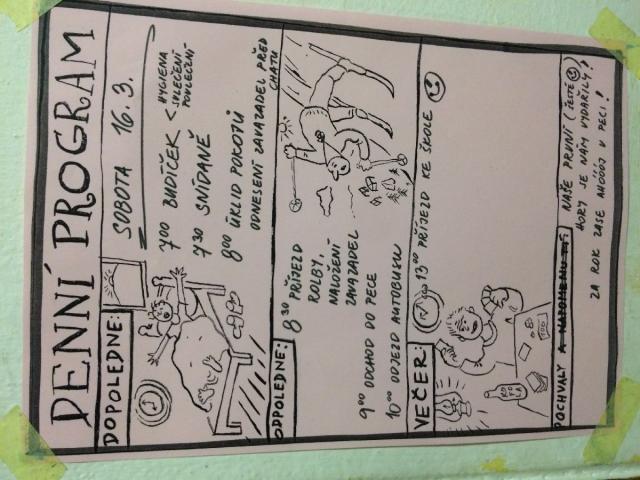 DENNÍ PROGRAM
DOPOLEDNE:
SOBOTA 16.3.
7⁰⁰ BUDÍČEK < HYGIENA
SVLEČENÍ
POVLEČENÍ
7³⁰ SNÍDANĚ
8⁰⁰ ÚKLID POKOJŮ
ODNESENÍ ZAVAZADEL PŘED
CHATU
ODPOLEDNE:
8³⁰ PŘÍJEZD
ROLBY,
NALOŽENÍ
ZAVAZADEL
9⁰⁰ ODCHOD DO PECE
10⁰⁰ ODJEZD AUTOBUSU
VEČER:
13⁰⁰ PŘÍJEZD KE ŠKOLE
KOFOLA
POCHVALY
NAŠE PRVNÍ (JEŠTĚ)
HORY SE NÁM VYDAŘILY!
ZA ROK ZASE AHÓÓÓJ V PECI!